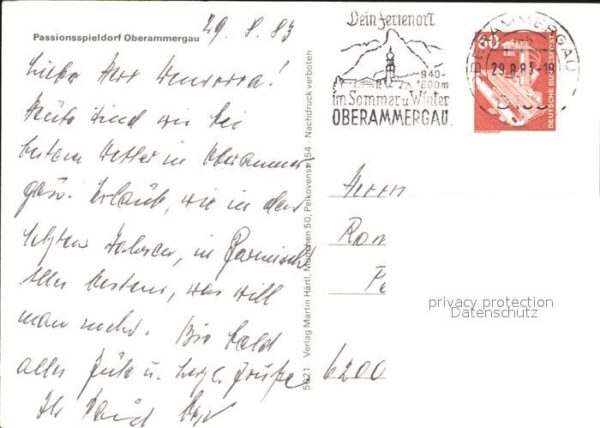 29.8.83
Passionsspieldorf Oberammergau
Lieber Herr
Heute sind wir bei
bestem Wetter in Oberammer
gau. Urlaub, wie in den
letzten Jahren, in Garmisch
Alles bestens, was will
man mehr. Bis bald
alles Gute u. herzl. Grüße
Ihr
5921 Verlag Martin Härtl, München 50, Pelkovenstr. 54 · Nachdruck verboten
Dein Ferienort
840-
1600m
im Sommer u. Winter
OBERAMMERGAU
OBERAMMERGAU
29.8.83-18
60
DEUTSCHE BUNDESPOST
Herrn
Rom
Fe
6200
privacy protection
Datenschutz